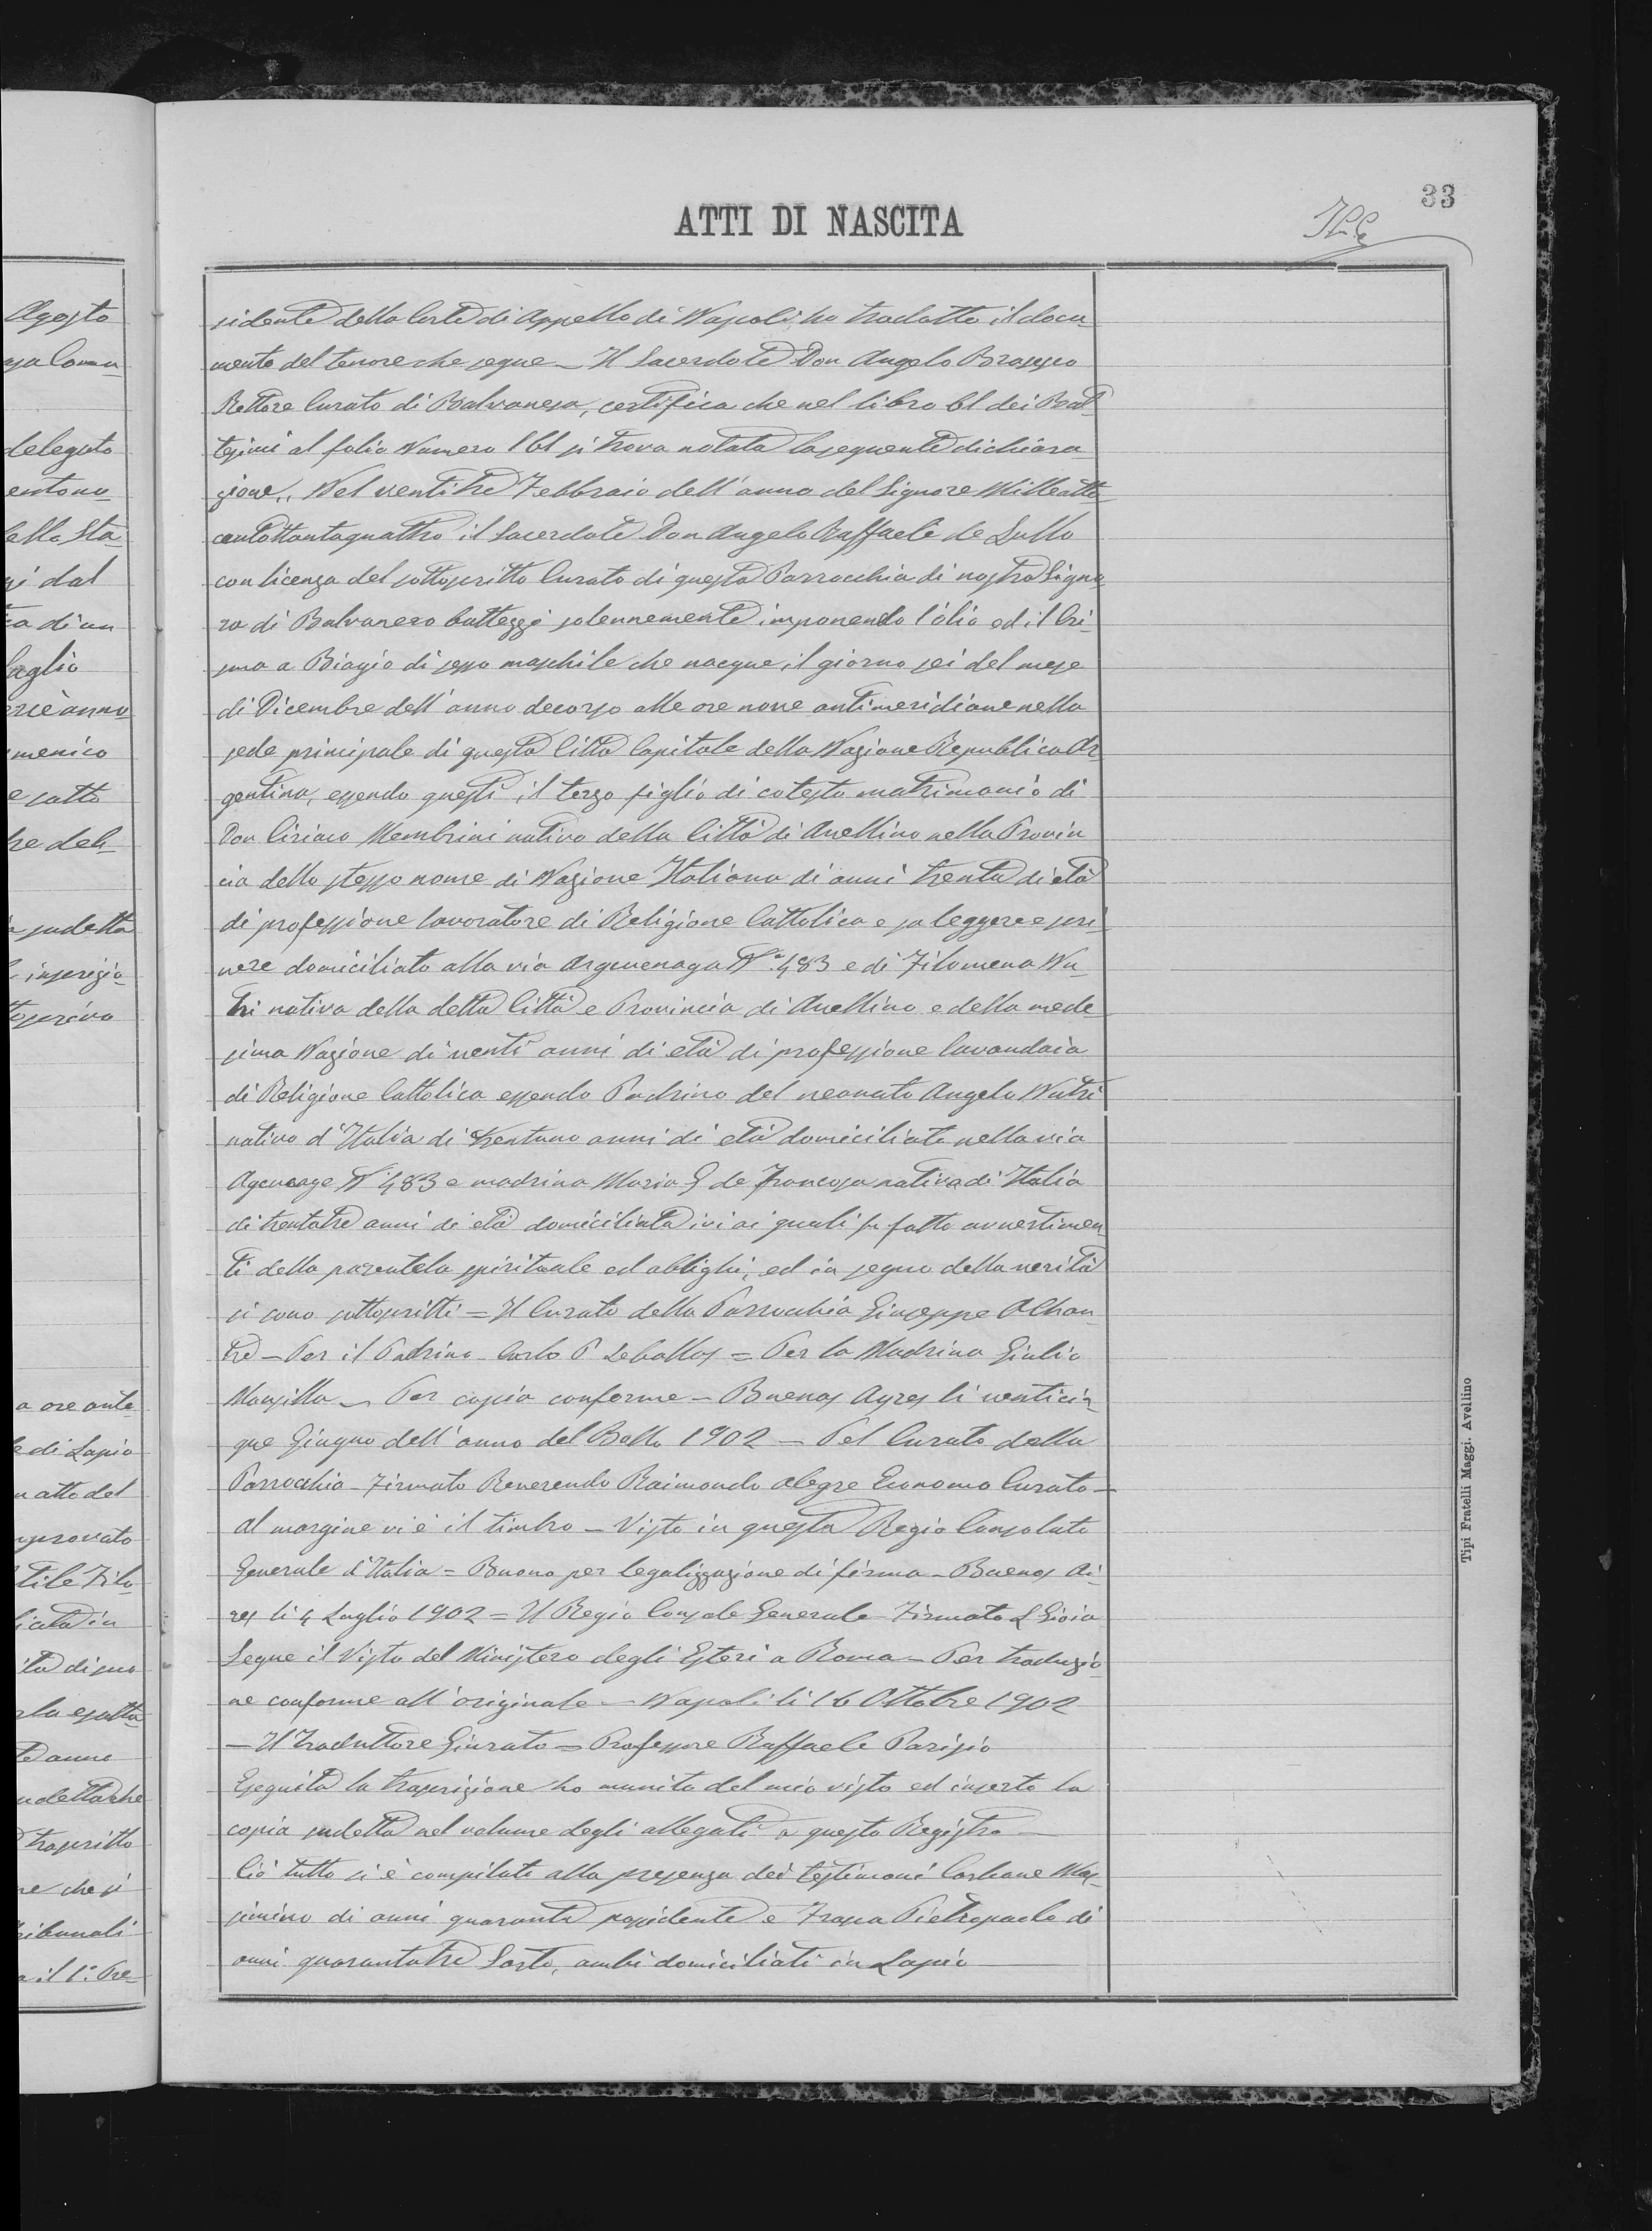 33
ATTI DI NASCITA
sidente della Corte di Appello di Napoli, ha tradotto il docu-
mento del tenore che segue - Il Sacerdote Don Angelo Brasesco
Rettore Curato di Balvanera, certifica che nel libro 61 dei Bat-
tesimi al folio Numero 161 si trova notata la seguente dichiara-
zione,, Nel ventitre Febbraio dell'anno del Signore Milleotto-
centottantaquattro il Sacerdote Don Angelo Raffaele de Lullo
con licenza del sottoscritto Curato di questa Parrocchia di nostra Signo-
ra di Balvanera battezzò solennemente imponendo l'olio ed il Cri-
sma a Biagio di sesso maschile che nacque, il giorno sei del mese
di Dicembre dell'anno decorso alle ore nove antimeridiane nella
sede principale di questa Città Capitale della Nazione Repubblica Ar
gentina, essendo questi il terzo figlio di cotesto matrimonio di
Don Ciriaco Membrini nativo della Città di Avellino nella Provin
cia dello stesso nome di Nazione Italiana di anni trenta di età
di professione lavoratore di Religione Cattolica e sa leggere e scri
vere domiciliato alla via N° 483 e di Filomena Nu-
tri nativa della detta Città e Provincia di Avellino e della mede-
sima Nazione di venti anni di età di professione lavandaia
di Religione Cattolica essendo Padrino del neonato Angelo Nutri
nativo d'Italia di trentuno anni di età domiciliato nella via
N° 483 e madrina Maria G de Francesca nativa di Italia
di trentatre anni di età domiciliata ivi ai quali fu fatto avvertimen
ti della parentela spirituale ed obblighi, ed in segno della verità
si sono sottoscritti = Il Curato della Parrocchia Giuseppe
- Per il Padrino - Carlo P Zeballos = Per la Madrina Giulia
Mansilla - Per copia conforme - Buenos Ayres li venticin-
que Giugno dell'anno del Bollo 1902 - Pel Curato della
Parrocchia - Firmato Reverendo Raimondo Alegre Economo Curato -
Al margine vi è il timbro - Visto in questo Regio Consolato
Generale d'Italia = Buono per legalizzazione di firma - Buenos Ai-
res li 4 Luglio 1902 = Il Regio Console Generale - Firmato L Gioia
Segue il Visto del Ministero degli Esteri a Roma - Per traduzio-
ne conforme all'originale - Napoli li 16 Ottobre 1902
- Il Traduttore Giurato = Professore Raffaele Parisio
Eseguita la trascrizione ho munito del mio visto ed inserto la
copia sudetta nel volume degli allegati a questo Registro -
Ciò tutto si è compilato alla presenza dei testimoni Carbone Mas-
simino di anni quaranta possidente e Frasca Pietropaolo di
anni quarantatre Sarto, ambi domiciliati in Lapio -
Tipi Fratelli Maggi. Avellino
Agosto
delegato
ello Sta-
si dal
ta di un
uglio
menico
e sotto
sudetta
a ore ante-
e di Lapio
n atto del
tile Filo-
trascritto
ne che si
ribunali
a il 1° Pre-